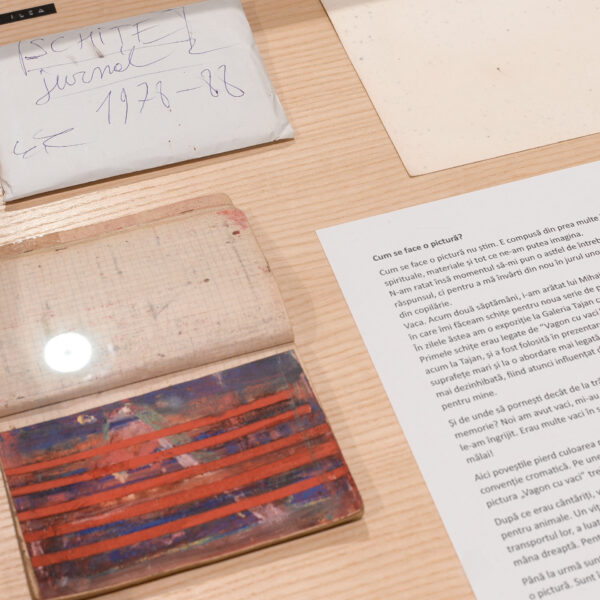 SCHIȚE
jurnal
1978-88
Cum se face o pictură?
Cum se face o pictură nu știm. E compusă din prea multe
spirituale, materiale și tot ce ne-am putea imagina.
N-am ratat însă momentul să-mi pun o astfel de întreb
răspunsul, ci pentru a mă învârti din nou în jurul uno
din copilărie.
Vaca. Acum două săptămâni, i-am arătat lui Mihai
în care îmi făceam schițe pentru noua serie de p
În zilele ăstea am o expoziție la Galeria Tajan c
Primele schițe erau legate de "Vagon cu vaci
acum la Tajan, și a fost folosită în prezentar
suprafețe mari și la o abordare mai legată
mai dezinhibată, fiind atunci influențat d
pentru mine.
Și de unde să pornești decât de la tră
memorie? Noi am avut vaci, mi-au
le-am îngrijit. Erau multe vaci în s
mălai!
Aici poveștile pierd culoarea r
convenție cromatică. Pe une
pictura „Vagon cu vaci" tre
După ce erau cântăriți, v
pentru animale. Un viț
transportul lor, a luat
mâna dreaptă. Pent
Până la urmă sunt
o pictură. Sunt î